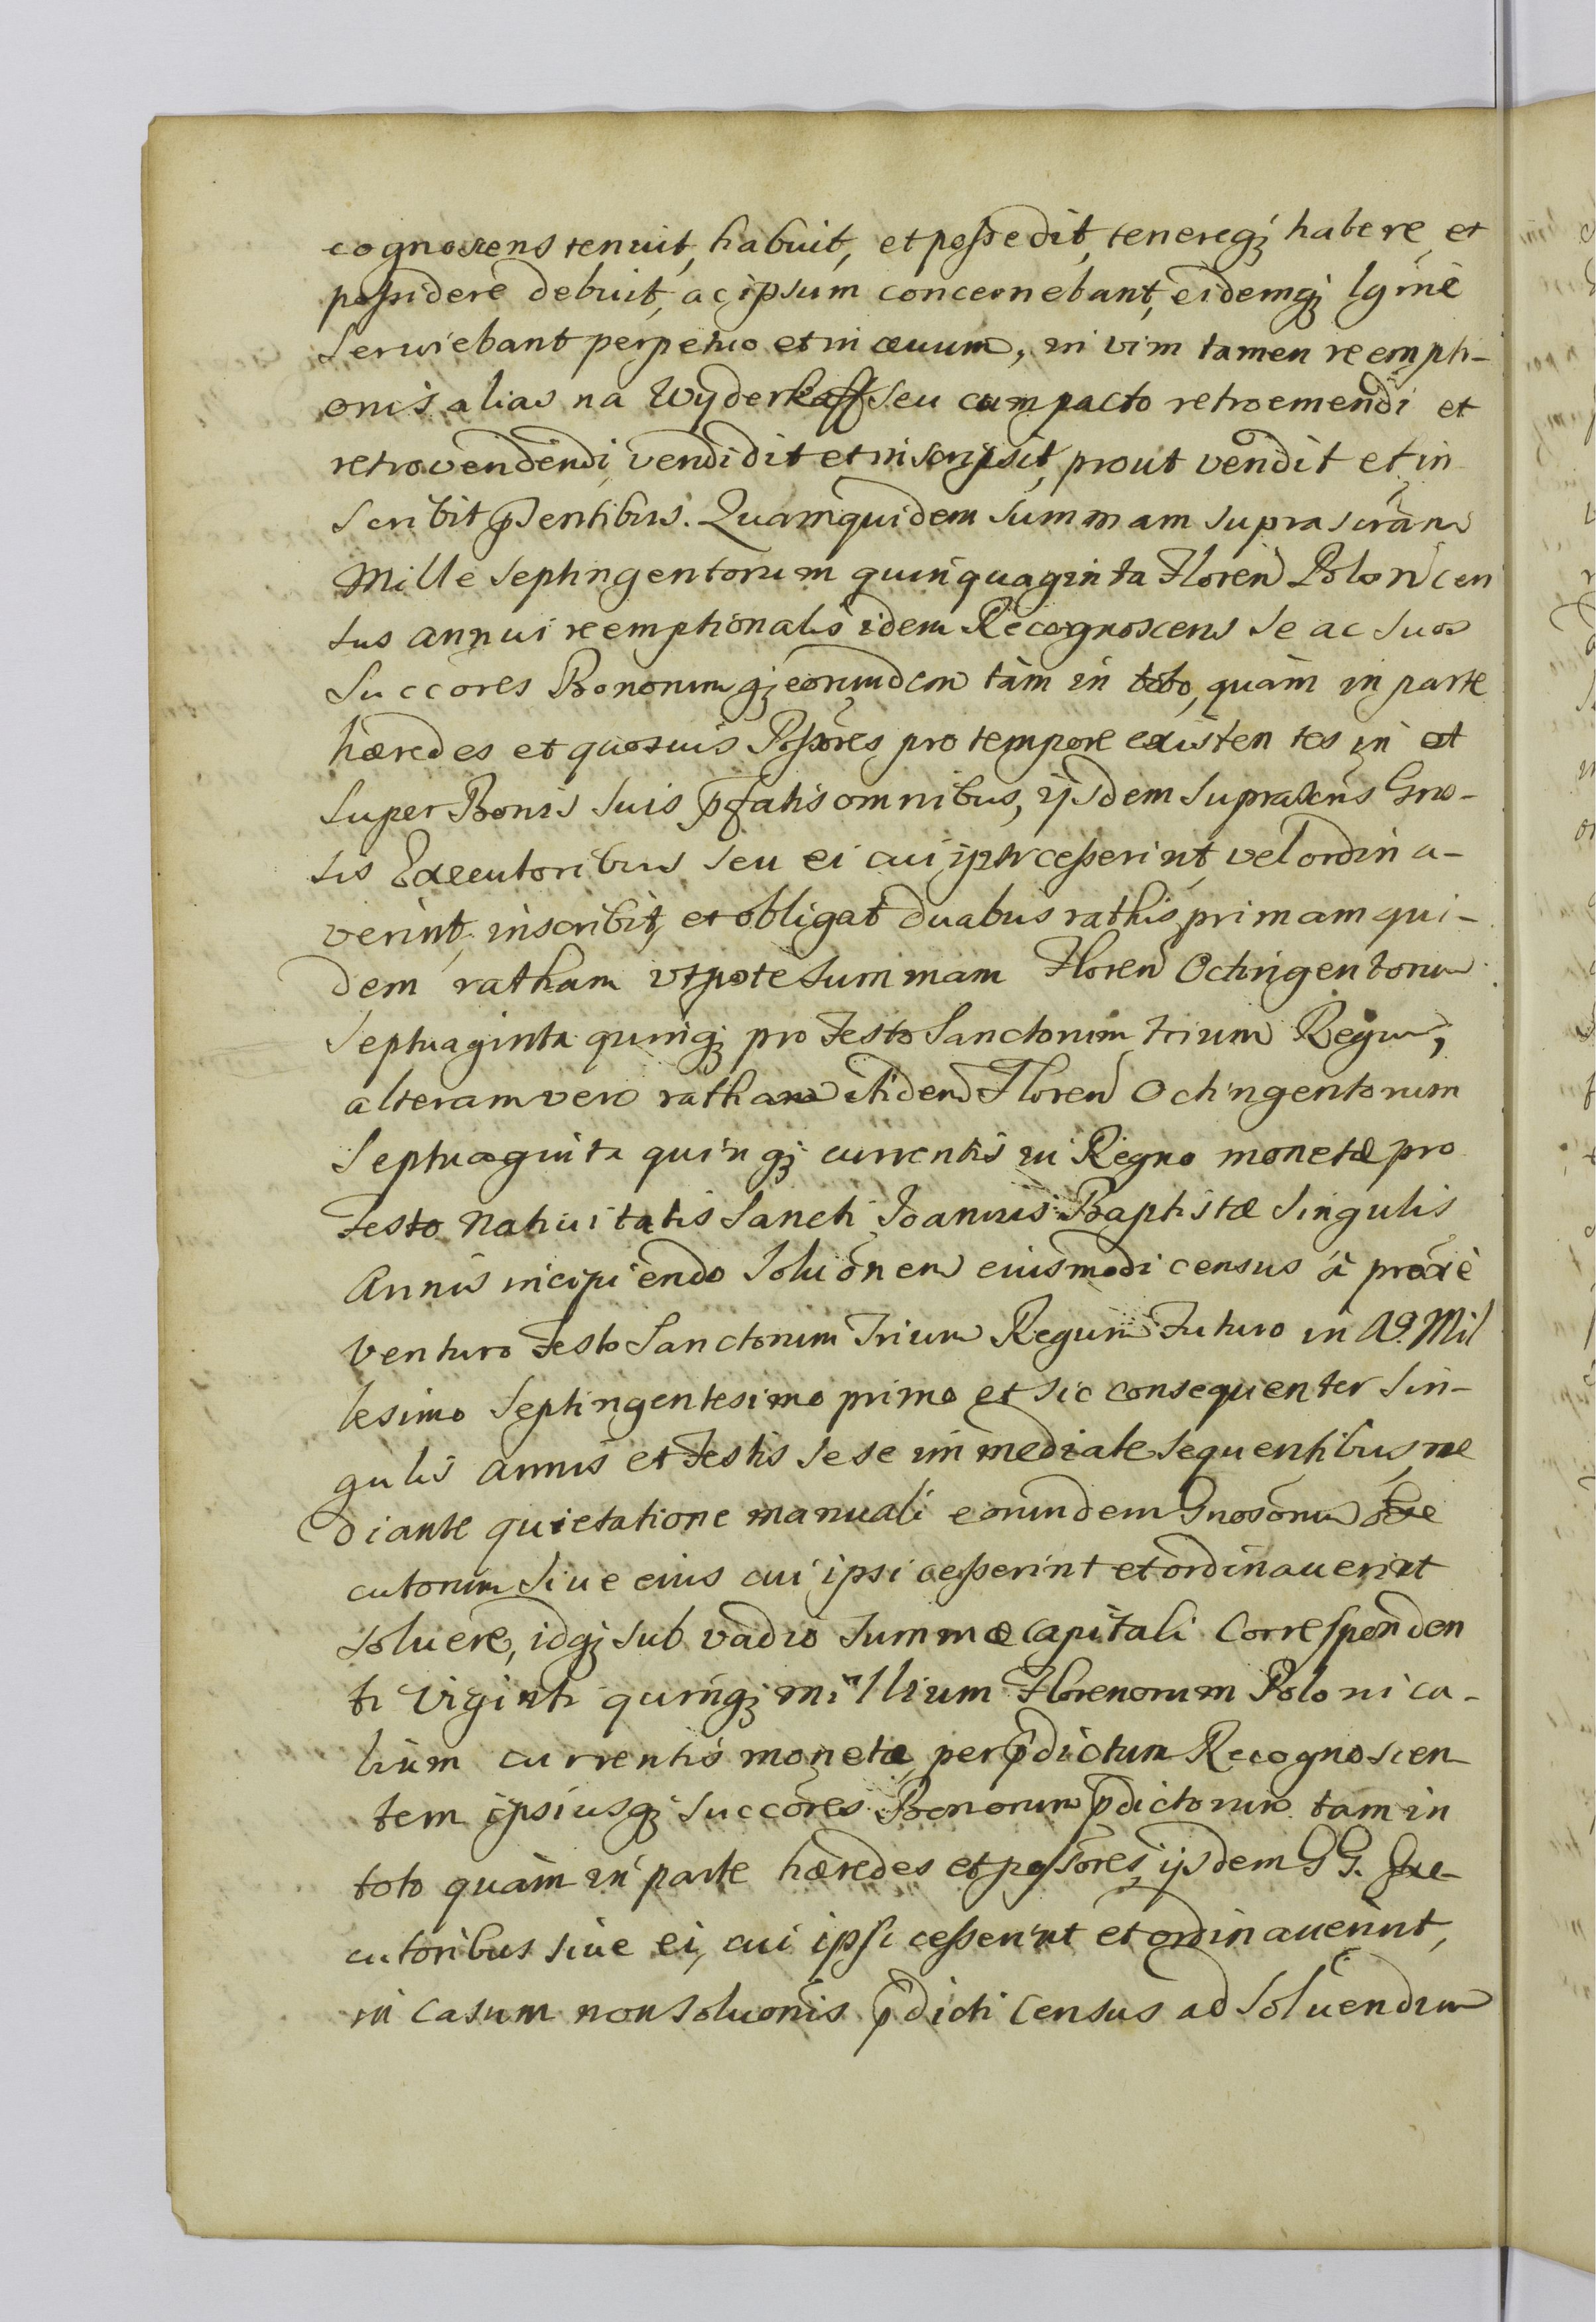 cognoscens tenuit, habuit, et possedit, tenereq; habere et
possidere debuit, ac ipsum concernebant, eidemq; lgimè
serviebant perpetuo et in ævum, in vim tamen reempti-
onis alias na Wyderkaff seu cum pacto retroemendi et
retrovendendi, vendidit et inscripsit, prout vendit et in
scribit p̄sentibus. Quamquidem summam suprascrãm
Mille septingentorum quinquaginta Floren Polon cen
sus annui reemptionalis idem Recognoscens se ac suos
Succores Bonorumq; eorumdem tàm in toto, quàm in parte
hæredes et quosuis Possores pro tempore existentes in et
super Bonis suis p̄fatis omnibus, ijsdem suprascris Gno-
sis Executoribus seu ei cui ipsi cesserint, vel ordina-
verint, inscribit, et obligat duabus rathis, primam qui-
dem ratham utpote summam Floren Octingentorum
septuaginta quinq; pro Festo Sanctorum trium Regum,
alteram vero ratham itidem Floren Octingentorum
septuaginta quinq; currentis in Regno monetæ pro
Festo Nativitatis Sancti Joannis Baptistæ singulis
Annis incipiendo soluõnem eiusmodi census à proxè
venturo Festo Sanctorum Trium Regum Futuro in Aº. Mil
lesimo septingentesimo primo et sic consequenter sin-
gulis annis et Festis sese immediate sequentibus, me
diante quietatione manuali eorumdem Gnosorum Exe
cutorum siue eius cui ipsi cesserint et ordinauerint
soluere, idq; sub vadio summæ capitali correspenden
ti viginti quinq; millium Florenorum Polonica-
lium currentis monetæ, per p̄dictum Recognoscen
tem ipsiusq; succores Bonorum p̄dictorum tam in
toto quàm in parte hæredes et possores, ijsdem GG. Exe-
cutoribus siue ei, cui ipsi cesserint et ordinauerint,
in casum non soluonis p̄dicti Census ad soluendum